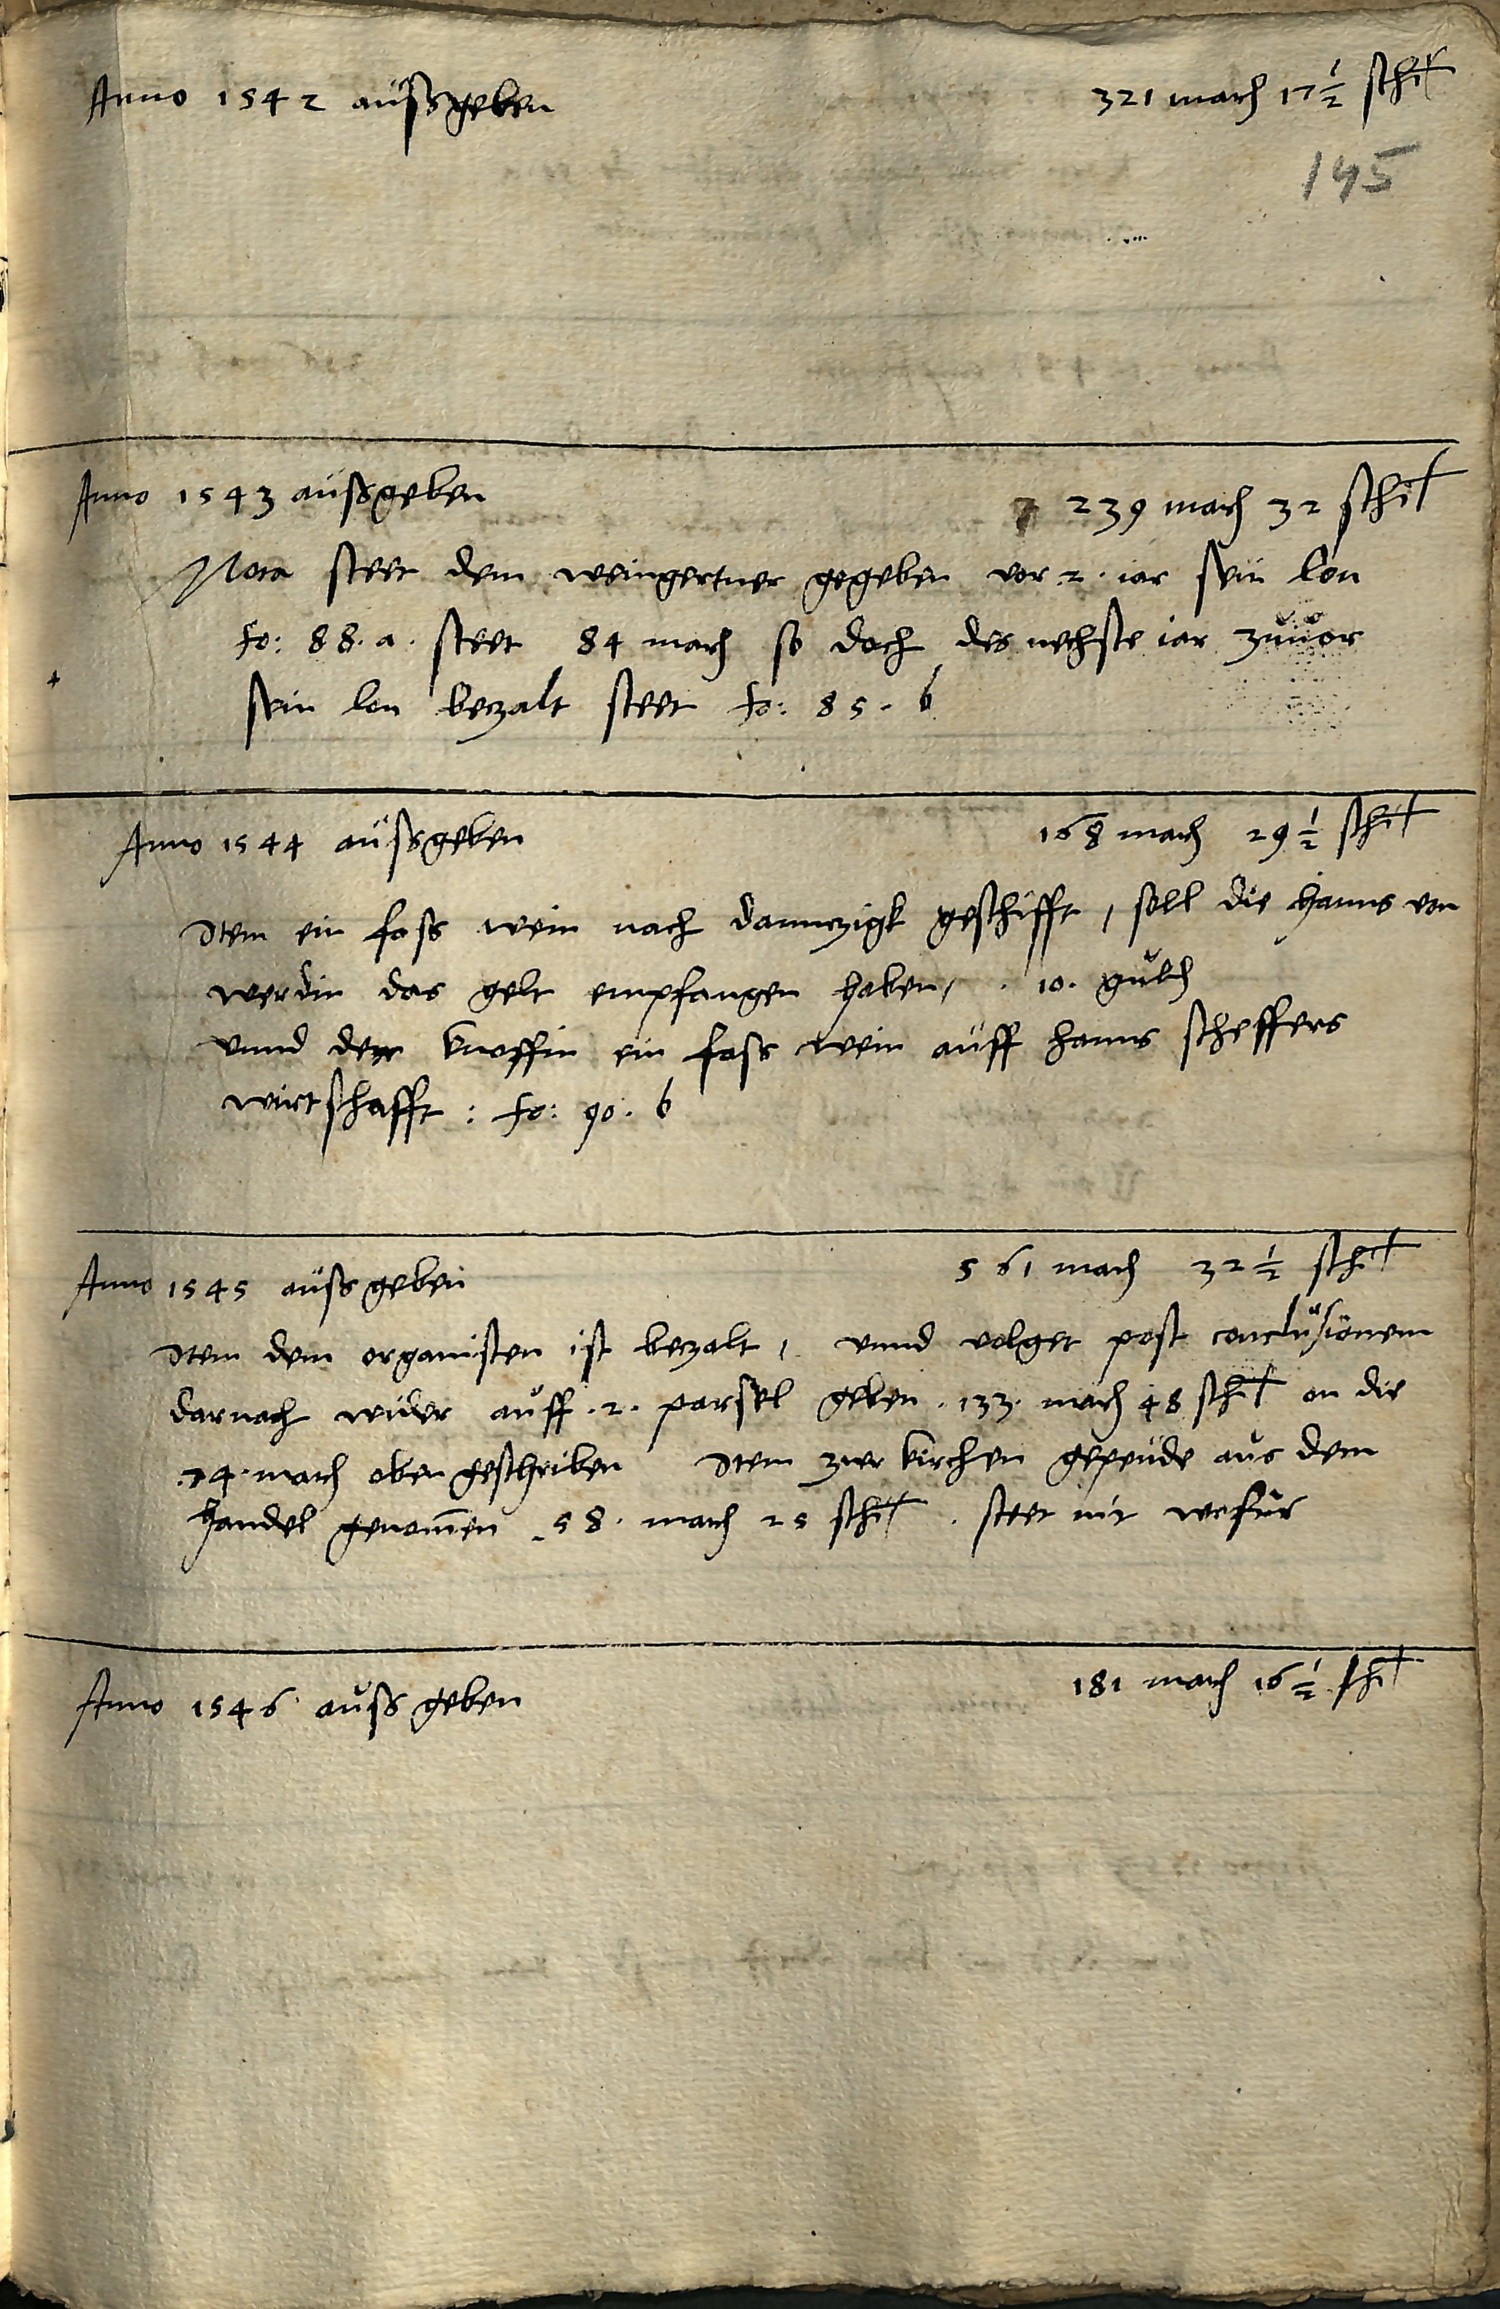 Anno 1542 außgeben 321 march 17 1/2 schil
145
Anno 1543 außgeben 239 march 32 schil
Nota steet dem weingertner gegeben vor 2 iar sein lon
fo: 88. a. steet 84 march so doch des nechste iar zuuor
sein lon beczalt steet fo: 85. b
Anno 1544 außgeben 168 march 29 1/2 schil
Item ein fass wein nach dannczigk geschifft, soll die hanns von
werdin das gelt empfangen haben, . 10. guld
vnnd der knoffin ein fass wein auff hanns scheffers
wirtschafft : fo: 90. b
Anno 1545 auss geben 561 march 32 1/2 schil
Item dem organisten ist beczalt, vnnd volget post conclusionem
darnach wider auff .2. parsel geben . 133. march 48 schil on die
74. march oben geschriben Item zwr kirchen gepeude aus dem
handel genomen 58. march 25 schil . steet nit wofur
Anno 1546 auss geben 181 march 16 1/2 schil